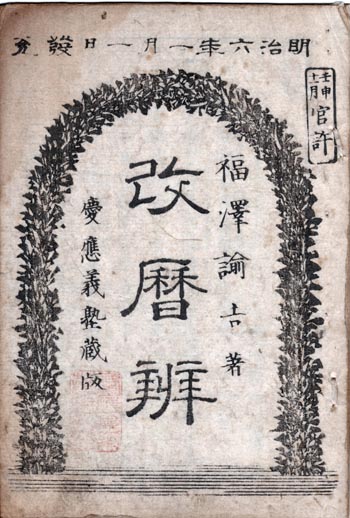 明治六年一月一日發兌
壬申
十一月
官許
福澤諭吉著
改暦辨
慶應義塾蔵版